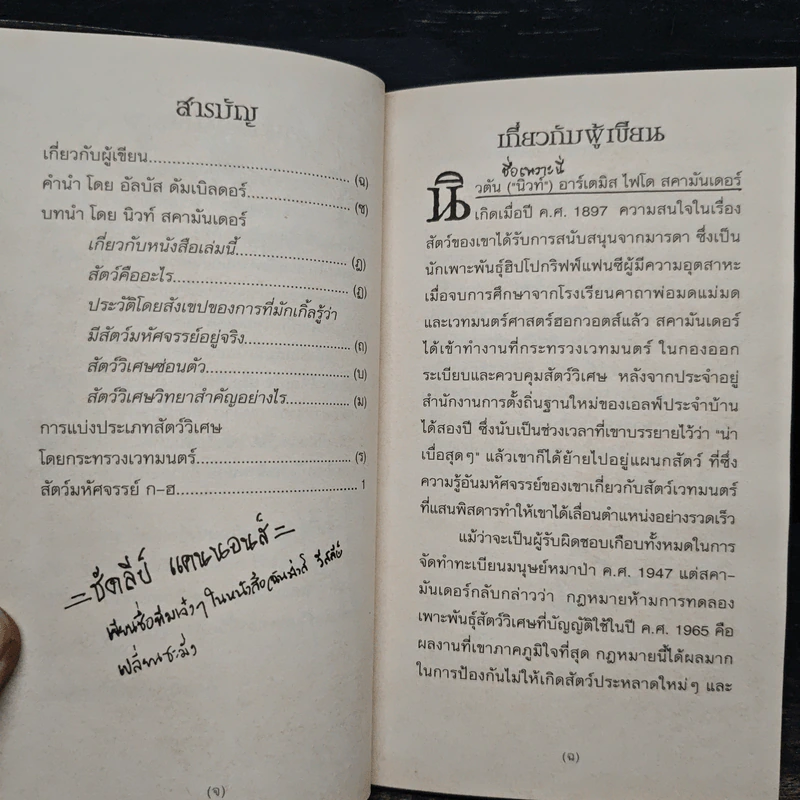 สารบัญ
เกี่ยวกับผู้เขียน..................................................(ฉ)
คำนำ โดย อัลบัส ดัมเบิลดอร์.......................(ช)
บทนำ โดย นิวท์ สคามันเดอร์
เกี่ยวกับหนังสือเล่มนี้.........................(ฎ)
สัตว์คืออะไร.......................................(ฏ)
ประวัติโดยสังเขปของการที่มักเกิ้ลรู้ว่า
มีสัตว์มหัศจรรย์อยู่จริง........................(ถ)
สัตว์วิเศษซ่อนตัว................................(บ)
สัตว์วิเศษวิทยาสำคัญอย่างไร...............(ม)
การแบ่งประเภทสัตว์วิเศษ
โดยกระทรวงเวทมนตร์.................................(ร)
สัตว์มหัศจรรย์ ก-ฮ.........................................1
=ชัดลีย์ แคนนอนส์=
เปลี่ยนซะมั่ง
(จ)
เกี่ยวกับผู้เขียน
ชื่อเพราะนี่
นิวตัน ("นิวท์") อาร์เตมิส ไฟโด สคามันเดอร์
เกิดเมื่อปี ค.ศ. 1897 ความสนใจในเรื่อง
สัตว์ของเขาได้รับการสนับสนุนจากมารดา ซึ่งเป็น
นักเพาะพันธุ์ฮิปโปกริฟฟ์แฟนซีผู้มีความอุตสาหะ
เมื่อจบการศึกษาจากโรงเรียนคาถาพ่อมดแม่มด
และเวทมนตร์ศาสตร์ฮอกวอตส์แล้ว สคามันเดอร์
ได้เข้าทำงานที่กระทรวงเวทมนตร์ ในกองออก
ระเบียบและควบคุมสัตว์วิเศษ หลังจากประจำอยู่
สำนักงานการตั้งถิ่นฐานใหม่ของเอลฟ์ประจำบ้าน
ได้สองปี ซึ่งนับเป็นช่วงเวลาที่เขาบรรยายไว้ว่า "น่า
เบื่อสุดๆ" แล้วเขาก็ได้ย้ายไปอยู่แผนกสัตว์ ที่ซึ่ง
ความรู้อันมหัศจรรย์ของเขาเกี่ยวกับสัตว์เวทมนตร์
ที่แสนพิสดารทำให้เขาได้เลื่อนตำแหน่งอย่างรวดเร็ว
แม้ว่าจะเป็นผู้รับผิดชอบเกือบทั้งหมดในการ
จัดทำทะเบียนมนุษย์หมาป่า ค.ศ. 1947 แต่สคา-
มันเดอร์กลับกล่าวว่า กฎหมายห้ามการทดลอง
เพาะพันธุ์สัตว์วิเศษที่บัญญัติใช้ในปี ค.ศ. 1965 คือ
ผลงานที่เขาภาคภูมิใจที่สุด กฎหมายนี้ได้ผลมาก
ในการป้องกันไม่ให้เกิดสัตว์ประหลาดใหม่ๆ และ
(ฉ)